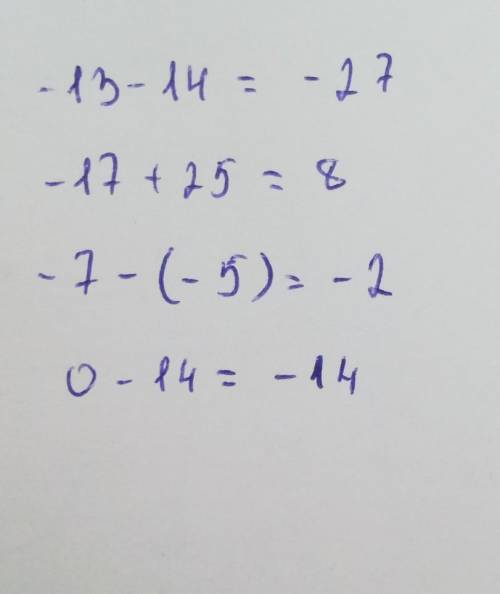 -13-14 = -27
-17+25 = 8
-7-(-5)= -2
0-14= -14